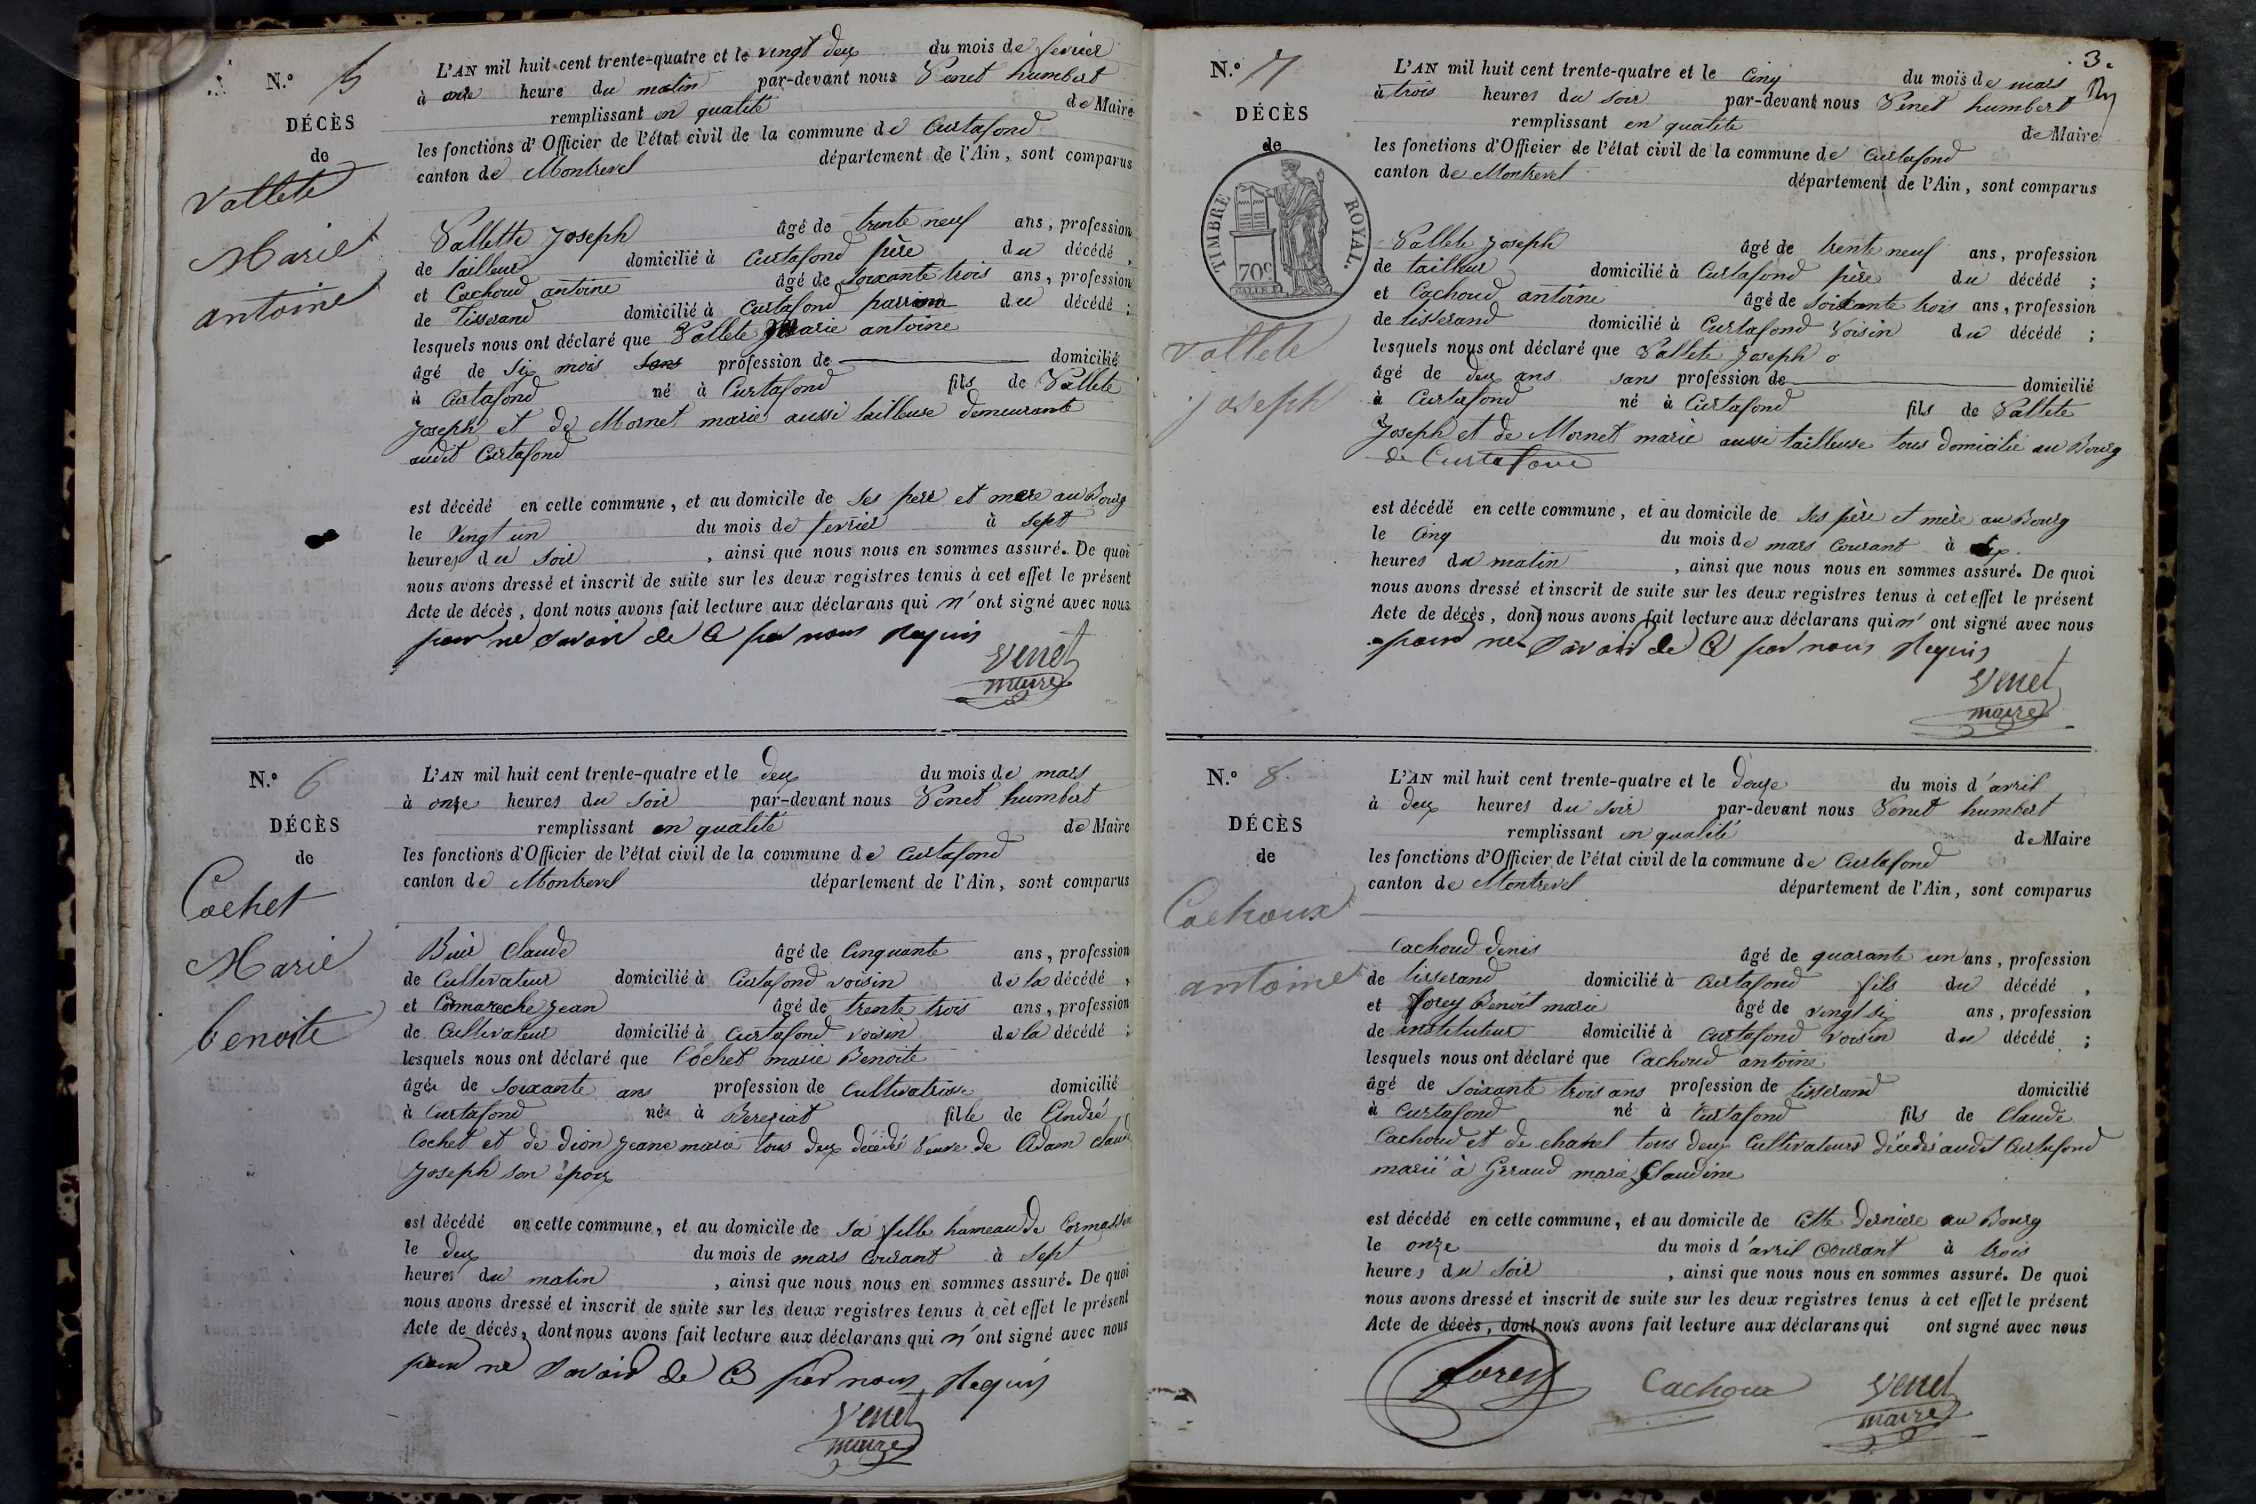 N.o 5
DÉCÈS
de
Vallete
Marie
antoine
L'AN mil huit cent trente-quatre et le vingt deux du mois de fevrier
à onze heure du matin par-devant nous Venet humbert
remplissant en qualité de Maire
les fonctions d'Officier de l'état civil de la commune de Curtafond
canton de Montrevel département de l'Ain, sont comparus
Vallette Joseph âgé de trente neuf ans, profession
de tailleur domicilié à Curtafond père du décédé,
et Cachoud antoine âgé de soixante trois ans, profession
de Tisserand domicilié à Curtafond parrain du décédé;
lesquels nous ont déclaré que Vallete Marie antoine
âgé de six mois sans profession de domicilié
à Curtafond né à Curtafond fils de Vallete
Joseph et de Mornet marie aussi tailleuse demeurante
audit Curtafond
est décédé en cette commune, et au domicile de ses père et mere au Bourg
le Vingt un du mois de fevrier à sept
heures du soir, ainsi que nous nous en sommes assuré. De quoi
nous avons dressé et inscrit de suite sur les deux registres tenus à cet effet le présent
Acte de décès, dont nous avons fait lecture aux déclarans qui n'ont signé avec nous
pour ne savoir de ce par nous Requis
Venet
maire
N.o 6
DÉCÈS
de
Cochet
Marie
benoite
L'AN mil huit cent trente-quatre et le deux du mois de mars
à onze heures du soir par-devant nous Venet humbert
remplissant en qualité de Maire
les fonctions d'Officier de l'état civil de la commune de Curtafond
canton de Montrevel département de l'Ain, sont comparus
Claude âgé de Cinquante ans, profession
de Cultivateur domicilié à Curtafond voisin de la décédé,
et Comareche Jean âgé de trente trois ans, profession
de Cultivateur domicilié à Curtafond voisin de la décédé;
lesquels nous ont déclaré que Cochet marie Benoite
âgée de soixante ans profession de Cultivatrice domicilié
à Curtafond née à Bereziat fille de André
Cochet et de dion jeane marie tous deux décédé Veuve de Adam claude
Joseph son époux
est décédé en cette commune, et au domicile de sa fille hameau de
le deux du mois de mars Courant à sept
heures du matin, ainsi que nous nous en sommes assuré. De quoi
nous avons dressé et inscrit de suite sur les deux registres tenus à cet effet le présent
Acte de décès, dont nous avons fait lecture aux déclarans qui n'ont signé avec nous
pour ne savoir de ce par nous Requis
Venet
maire
3.
N.o 7
DÉCÈS
de
TIMBRE ROYAL.
70c
Vallete
Joseph
L'AN mil huit cent trente-quatre et le Cinq du mois de mars
à trois heures du soir par-devant nous Venet humbert
remplissant en qualité de Maire
les fonctions d'Officier de l'état civil de la commune de Curtafond
canton de Montrevel département de l'Ain, sont comparus
Vallete Joseph âgé de trente neuf ans, profession
de tailleur domicilié à Curtafond père du décédé;
et Cachoud antoine âgé de soixante trois ans, profession
de tisserand domicilié à Curtafond Voisin du décédé;
lesquels nous ont déclaré que Vallete Joseph
âgé de deux ans sans profession de domicilié
à Curtafond né à Curtafond fils de Vallete
Joseph et de Mornet marie aussi tailleuse tous domicilié au Bourg
de Curtafond
est décédé en cette commune, et au domicile de ses père et mère au Bourg
le Cinq du mois de mars Courant à
heures du matin, ainsi que nous nous en sommes assuré. De quoi
nous avons dressé et inscrit de suite sur les deux registres tenus à cet effet le présent
Acte de décès, dont nous avons fait lecture aux déclarans qui n'ont signé avec nous
pour ne savoir de ce par nous Requis
Venet
maire
N.o 8.
DÉCÈS
de
Cachoux
antoine
L'AN mil huit cent trente-quatre et le douze du mois d'avril
à deux heures du soir par-devant nous Venet humbert
remplissant en qualité de Maire
les fonctions d'Officier de l'état civil de la commune de Curtafond
canton de Montrevel département de l'Ain, sont comparus
Cachoud denis âgé de quarante un ans, profession
de tisserand domicilié à Curtafond fils du décédé,
et forey Benoit marie âgé de vingt six ans, profession
de instituteur domicilié à Curtafond voisin du décédé;
lesquels nous ont déclaré que Cachoud antoine
âgé de soixante trois ans profession de tisserand domicilié
à Curtafond né à Curtafond fils de Claude
Cachoud et de chanel tous deux Cultivateurs décédés audit Curtafond
marié à Géraud marie Claudine
est décédé en cette commune, et au domicile de Cette derniere au Bourg
le onze du mois d'avril courant à trois
heures du soir, ainsi que nous nous en sommes assuré. De quoi
nous avons dressé et inscrit de suite sur les deux registres tenus à cet effet le présent
Acte de décès, dont nous avons fait lecture aux déclarans qui ont signé avec nous
forey Cachoux Venet
maire